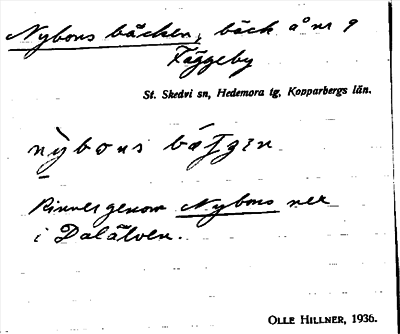 Nybons bäcken, bäck å nr 9
Fäggeby
St. Skedvi sn, Hedemora tg, Kopparbergs län.
nybons
Rinner genom Nybons ner
i Dalälven.
OLLE HILLNER, 1936.